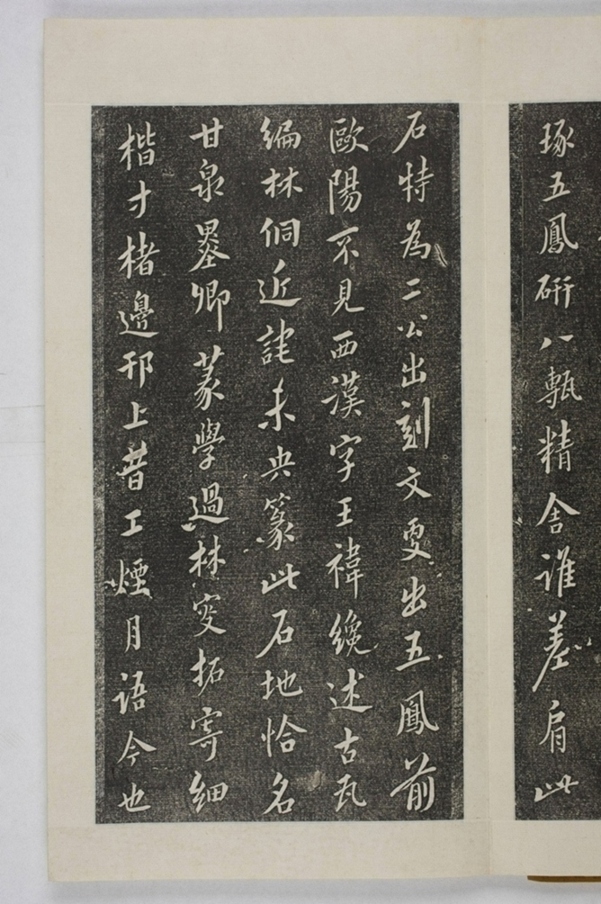 琢五鳳硏八甎精舍誰差肩此
石特為二公出刻文更出五鳳前
歐陽不見西漢字王禕纔述古瓦
編林侗近詫未央篆此石地恰名
甘泉墨卿篆學過林叜拓寄細
楷寸楮邊邗上昔工煙月語今也